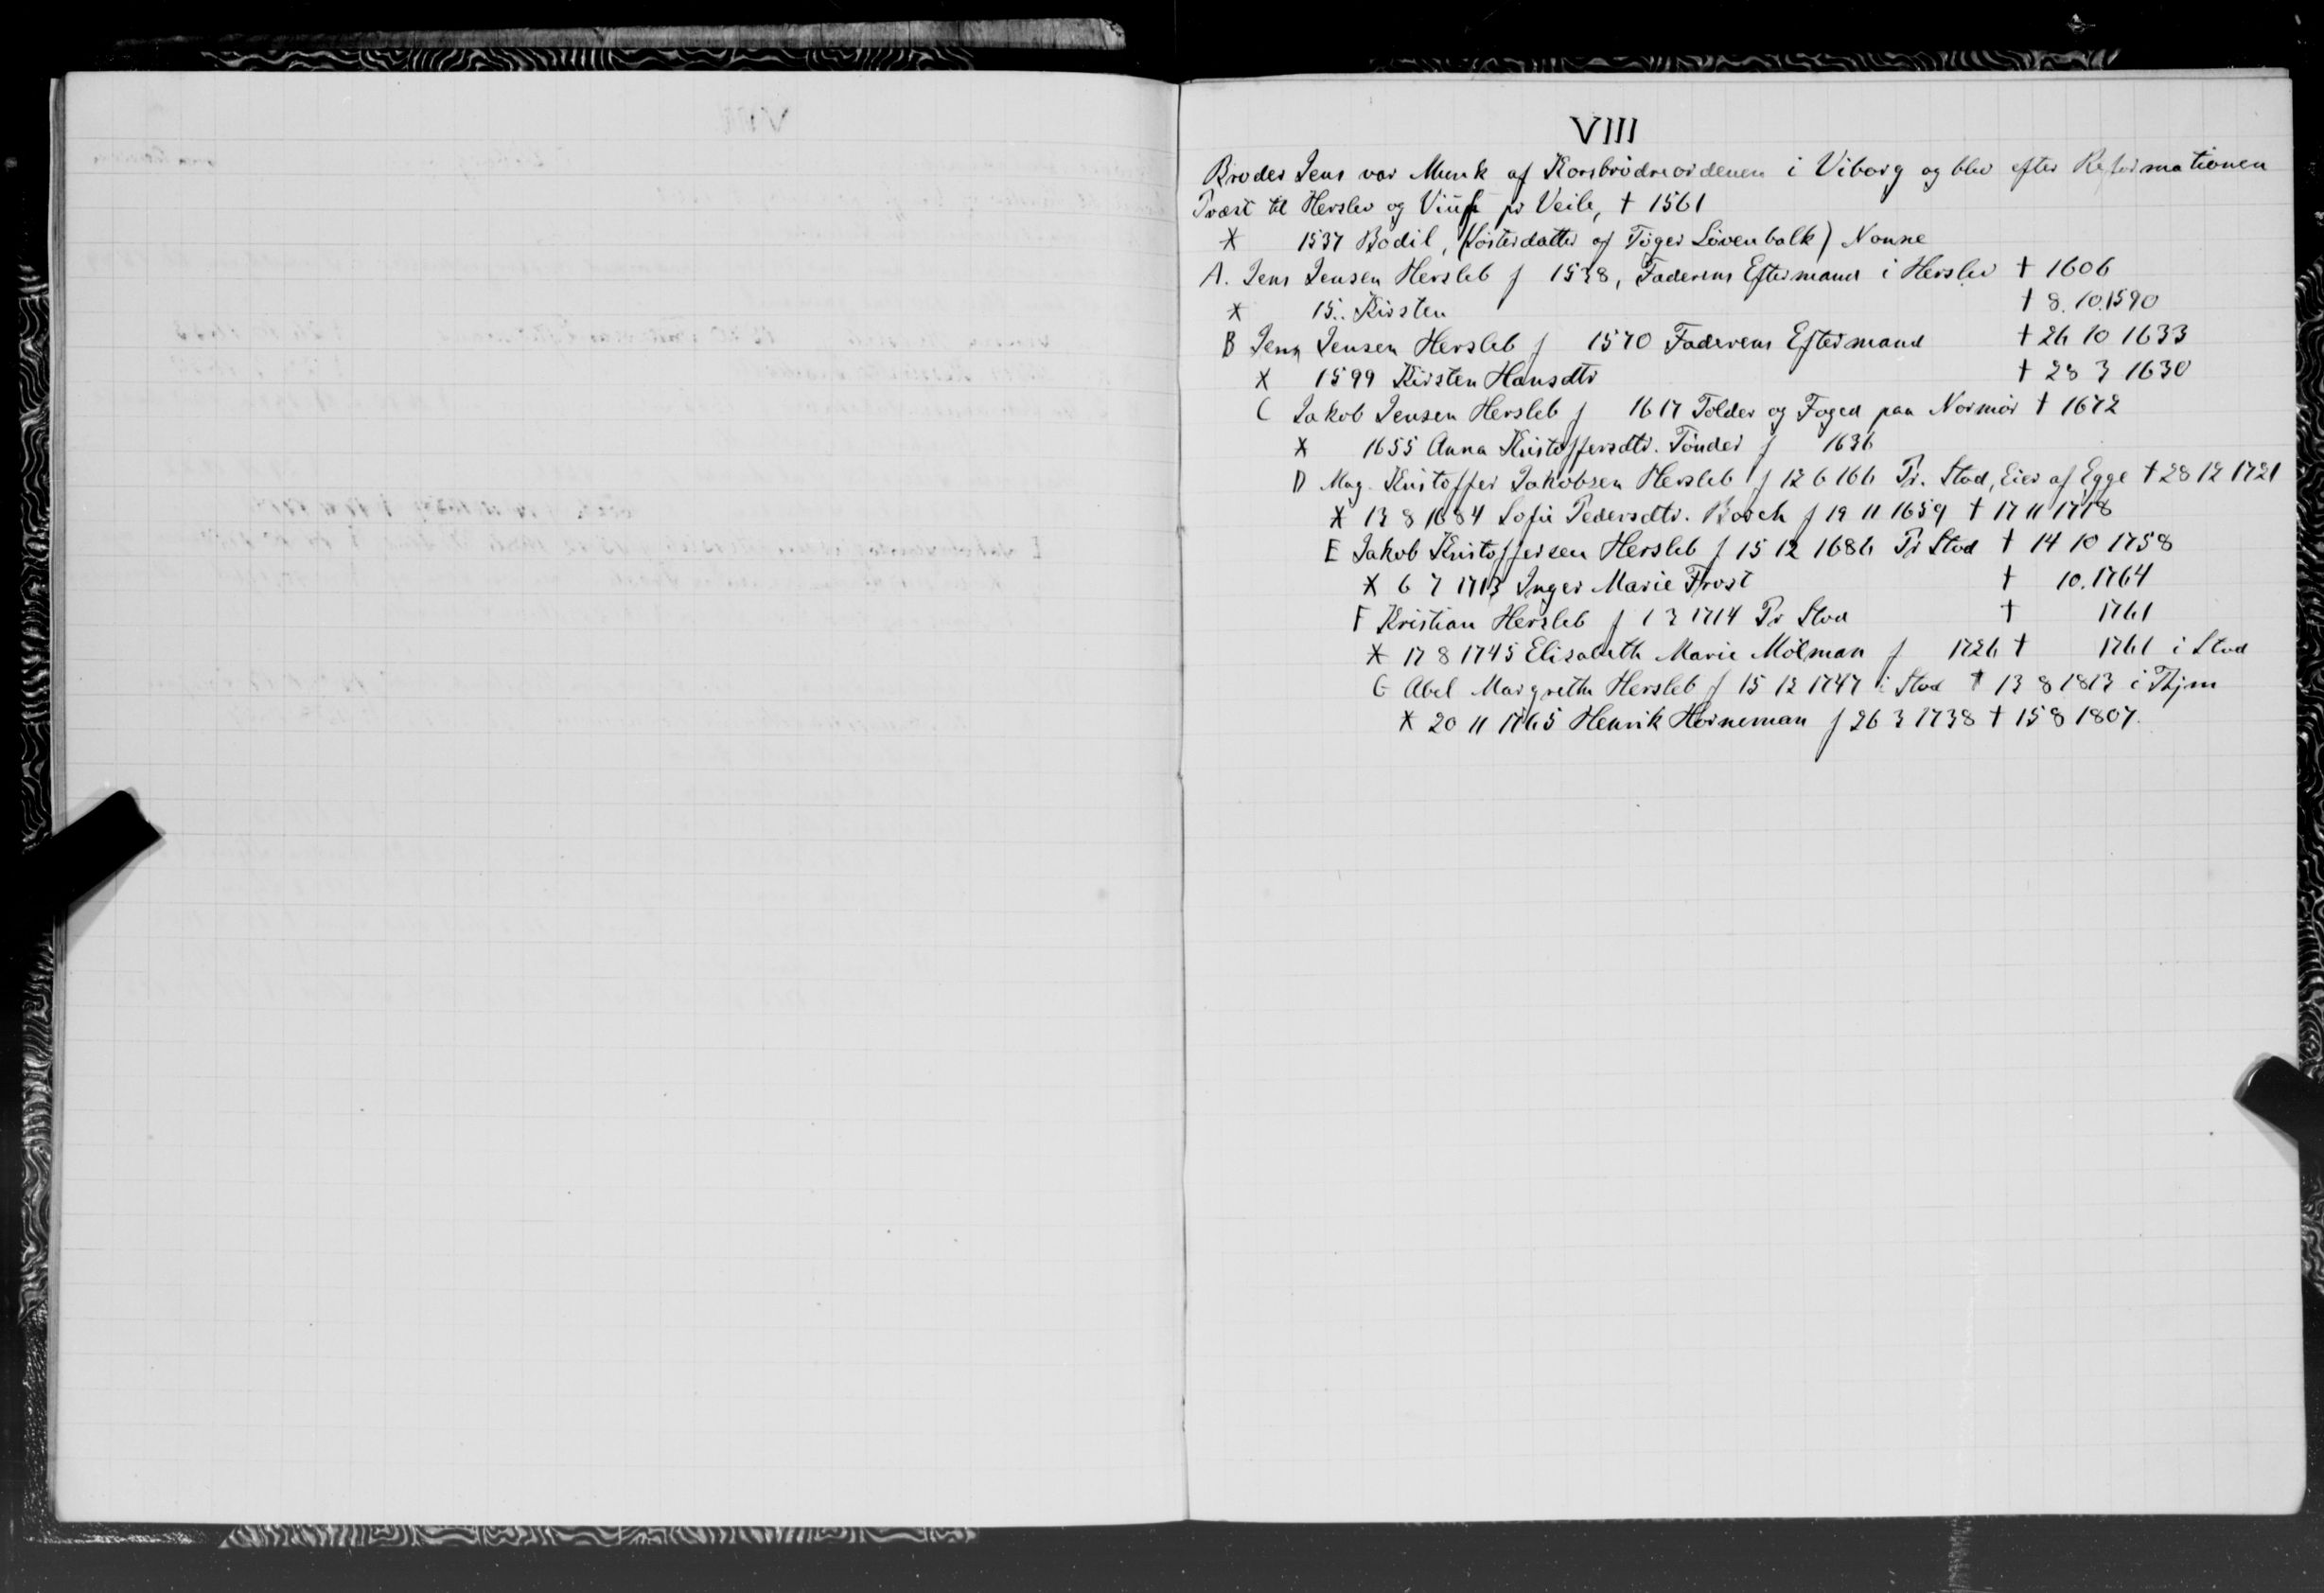 VIII
Broder Jens var Munk af Korsbrødreordenen i Viborg og blev efter Reformationen
Præst til Herslev og Viuf pr Veile, † 1561
X 1537 Bodil, (Søsterdatter af Tøger Løvenbalk) Nonne
A. Jens Jensen Hersleb f 1538, Faderens Eftermand i Herslev † 1606
X 15.. Kirsten † 8.10.1590
B Jens Jensen Hersleb f 1570 Faderens Eftermand † 26 10 1633
X 1599 Kirsten Hansdtr † 28 3 1630
C Jakob Jensen Hersleb f 1617 Tolder og Foged paa Normør † 1672
X 1655 Anna Kristoffersdtr. Tønder f 1636
D Mag. Kristoffer Jakobsen Hersleb f 12 6 166 Pr. Stod, Eier af Egge † 28 12 1721
X 13 8 1684 Sofie Pedersdtr. Borch f 19 11 1659 † 17 11 1718
E Jakob Kristoffersen Hersleb f 15 12 1686 Pr Stod † 14 10 1758
X 6 7 1713 Inger Marie Frost † 10.1764
F Kristian Hersleb f 1 3 1714 Pr Stod † 1761
X 17 8 1745 Elisabeth Marie Mölman f 1726 † 1761 i Stod
G Abel Margrethe Hersleb f 15 12 1747 i Stod † 13 8 1813 i Thjm
X 20 11 1765 Henrik Horneman f 26 3 1738 † 15 8 1807.